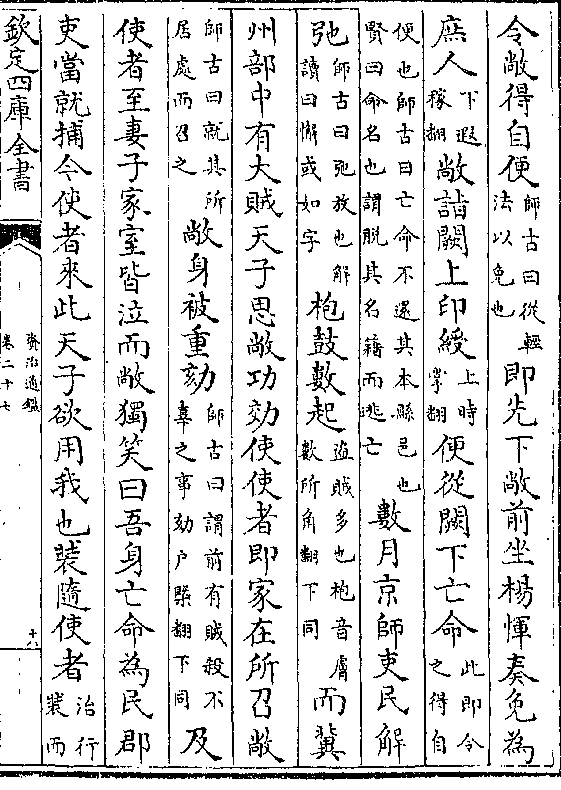 令敞得自便師古曰從輕法以免也即先下敞前坐楊惲奏免為
庶人下遐稼翻敞詣闕上印綬上時掌翻便從闕下亡命此即令之得自
便也師古曰亡命不還其本縣邑也賢曰命名也謂脱其名籍而逃亡數月京師吏民解
弛師古曰弛放也解讀曰懈或如字枹鼓數起盜賊多也枹音膚數所角翻下同而冀
州部中有大賊天子思敞功効使使者即家在所召敞
師古曰就其所居處而召之敞身被重劾師古曰謂前有賊殺不辜之事劾户槩翻下同及
使者至妻子家室皆泣而敞獨笑曰吾身亡命為民郡
吏當就捕今使者來此天子欲用我也裝隨使者治行裝而
欽定四庫全書
資治通鑑
卷二十七
十八